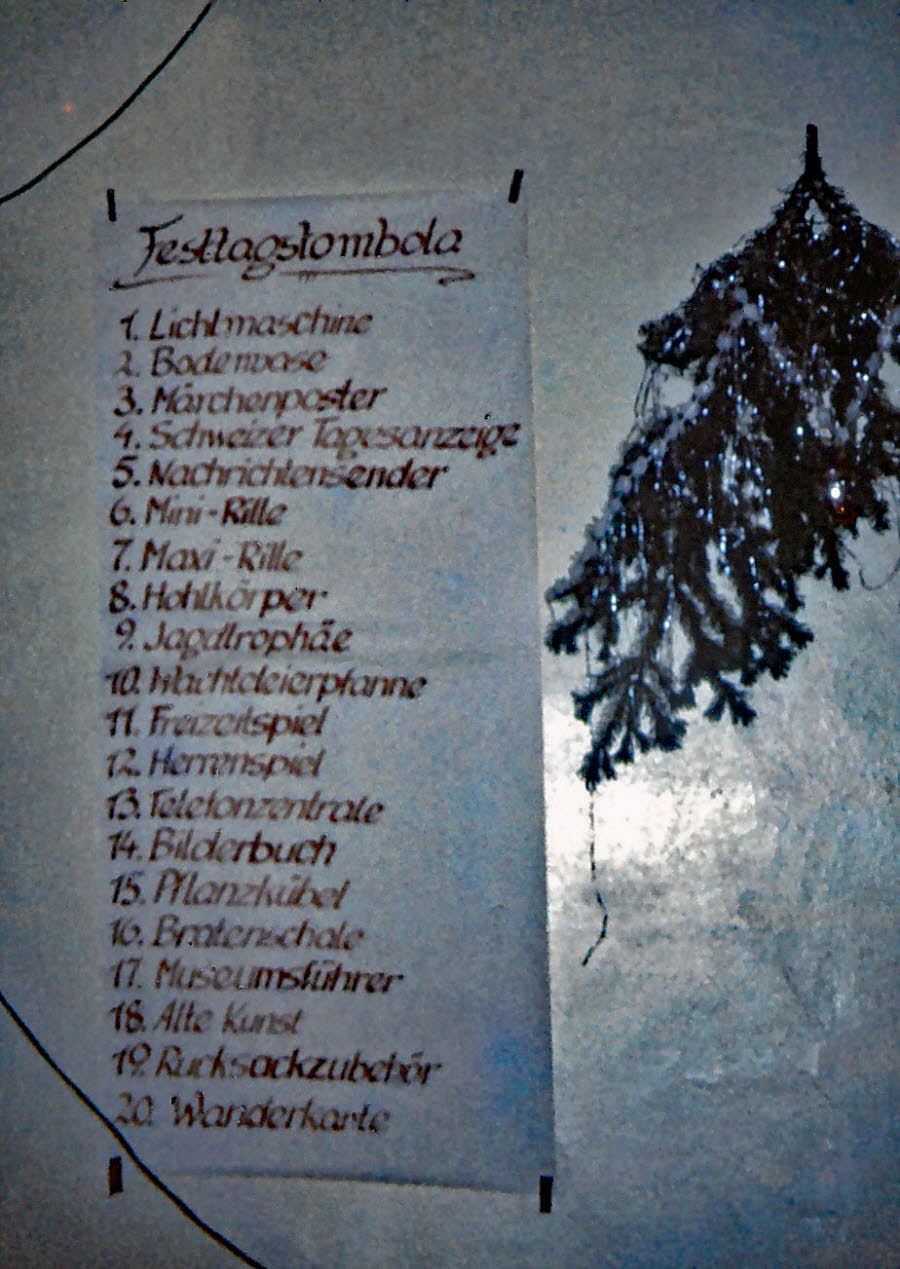 Festtagstombola
1. Lichtmaschine
2. Bodenvase
3. Märchenposter
4. Schweizer Tagesanzeige
5. Nachrichtensender
6. Mini-Rille
7. Maxi-Rille
8. Hohlkörper
9. Jagdtrophäe
10. Wachteleierpfanne
11. Freizeitspiel
12. Herrenspiel
13. Telefonzentrale
14. Bilderbuch
15. Pflanzkübel
16. Bratenschale
17. Museumsführer
18. Alte Kunst
19. Rucksackzubehör
20. Wanderkarte